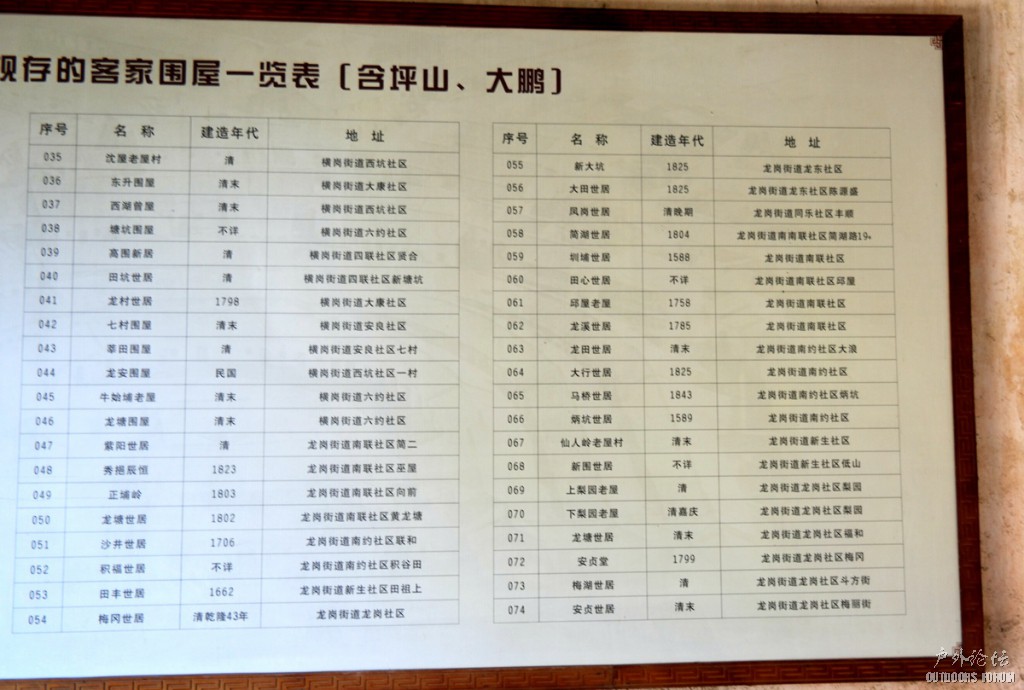 现存的客家围屋一览表〔含坪山、大鹏〕
序号 名 称 建造年代 地 址
035 沈屋老屋村 清 横岗街道西坑社区
036 东升围屋 清末 横岗街道大康社区
037 西湖曾屋 清末 横岗街道西坑社区
038 塘坑围屋 不详 横岗街道六约社区
039 高围新居 清 横岗街道四联社区贤合
040 田坑世居 清 横岗街道四联社区新塘坑
041 龙村世居 1798 横岗街道大康社区
042 七村围屋 清末 横岗街道安良社区
043 莘田围屋 清 横岗街道安良社区七村
044 龙安围屋 民国 横岗街道西坑社区一村
045 牛始埔老屋 清末 横岗街道六约社区
046 龙塘围屋 清末 横岗街道六约社区
047 紫阳世居 清 龙岗街道南联社区简二
048 秀挹辰恒 1823 龙岗街道南联社区巫屋
049 正埔岭 1803 龙岗街道南联社区向前
050 龙塘世居 1802 龙岗街道南联社区黄龙塘
051 沙井世居 1706 龙岗街道南约社区联和
052 积福世居 不详 龙岗街道南约社区积谷田
053 田丰世居 1662 龙岗街道新生社区田祖上
054 梅冈世居 清乾隆43年 龙岗街道龙岗社区
序号 名 称 建造年代 地 址
055 新大坑 1825 龙岗街道龙东社区
056 大田世居 1825 龙岗街道龙东社区陈源盛
057 凤岗世居 清晚期 龙岗街道同乐社区丰顺
058 简湖世居 1804 龙岗街道南南联社区简湖路19
059 圳埔世居 1588 龙岗街道南联社区
060 田心世居 不详 龙岗街道南联社区邱屋
061 邱屋老屋 1758 龙岗街道南联社区
062 龙溪世居 1785 龙岗街道南联社区
063 龙田世居 清末 龙岗街道南约社区大浪
064 大行世居 1825 龙岗街道南约社区
065 马桥世居 1843 龙岗街道南约社区炳坑
066 炳坑世居 1589 龙岗街道南约社区
067 仙人岭老屋村 清末 龙岗街道新生社区
068 新围世居 不详 龙岗街道新生社区低山
069 上梨园老屋 清 龙岗街道龙岗社区梨园
070 下梨园老屋 清嘉庆 龙岗街道龙岗社区梨园
071 龙塘世居 清末 龙岗街道龙岗社区福和
072 安贞堂 1799 龙岗街道龙岗社区梅冈
073 梅湖世居 清 龙岗街道龙岗社区斗方街
074 安贞世居 清末 龙岗街道龙岗社区梅丽街
户外论坛
OUTDOORS FORUM